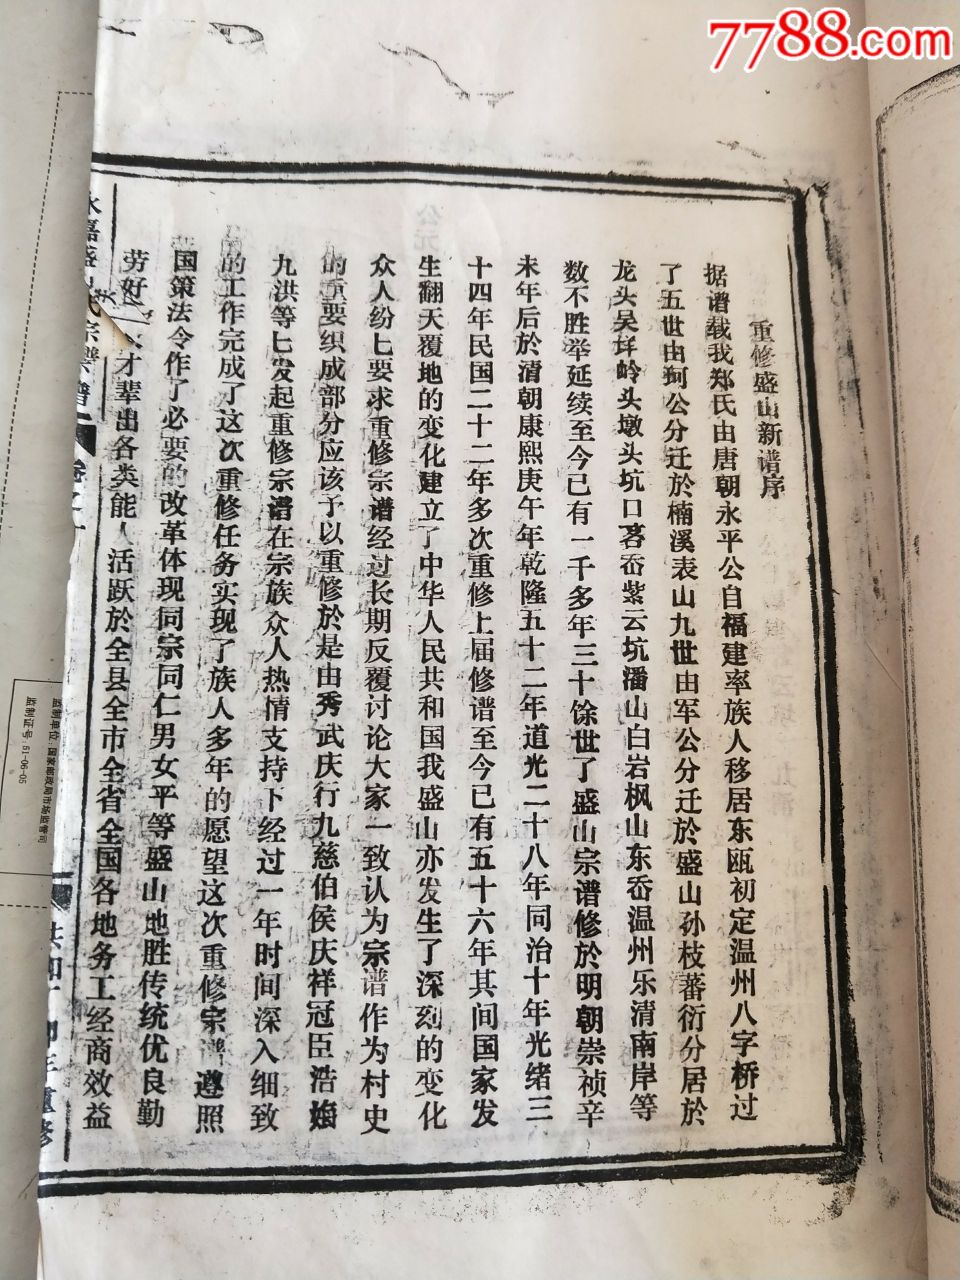 7788.com
重修盛山新谱序
据谱载我郑氏由唐朝永平公自福建率族人移居东瓯初定温州八字桥过
了五世由珂公分迁於楠溪表山九世由军公分迁於盛山孙枝蕃衍分居於
龙头吴垟岭头墩头坑口茗岙紫云坑潘山白岩枫山东岙温州乐清南岸等
数不胜举延续至今已有一千多年三十馀世了盛山宗谱修於明朝崇祯辛
未年后於清朝康熙庚午年乾隆五十二年道光二十八年同治十年光绪三
十四年民国二十二年多次重修上届修谱至今已有五十六年其间国家发
生翻天覆地的变化建立了中华人民共和国我盛山亦发生了深刻的变化
众人纷纷要求重修宗谱经过长期反覆讨论大家一致认为宗谱作为村史
的重要织成部分应该予以重修於是由秀武庆行九慈伯侯庆祥冠臣浩
九洪等七发起重修宗谱在宗族众人热情支持下经过一年时间深入细致
的工作完成了这次重修任务实现了族人多年的愿望这次重修宗谱遵照
国策法令作了必要的改革体现同宗同仁男女平等盛山地胜传统优良勤
劳好 才辈出各类能人活跃於全县全市全省全国各地务工经商效益
嘉盛 氏宗谱 卷之
重修
监制单位:国家邮政局市场监管司
监制证号:51-06-05